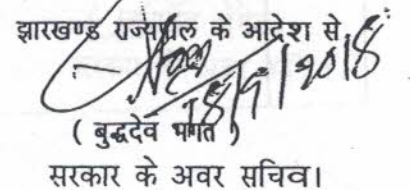 झारखण्ड राज्यपाल के आदेश से
18/9/2018
( बुद्धदेव भगत )
सरकार के अवर सचिव।